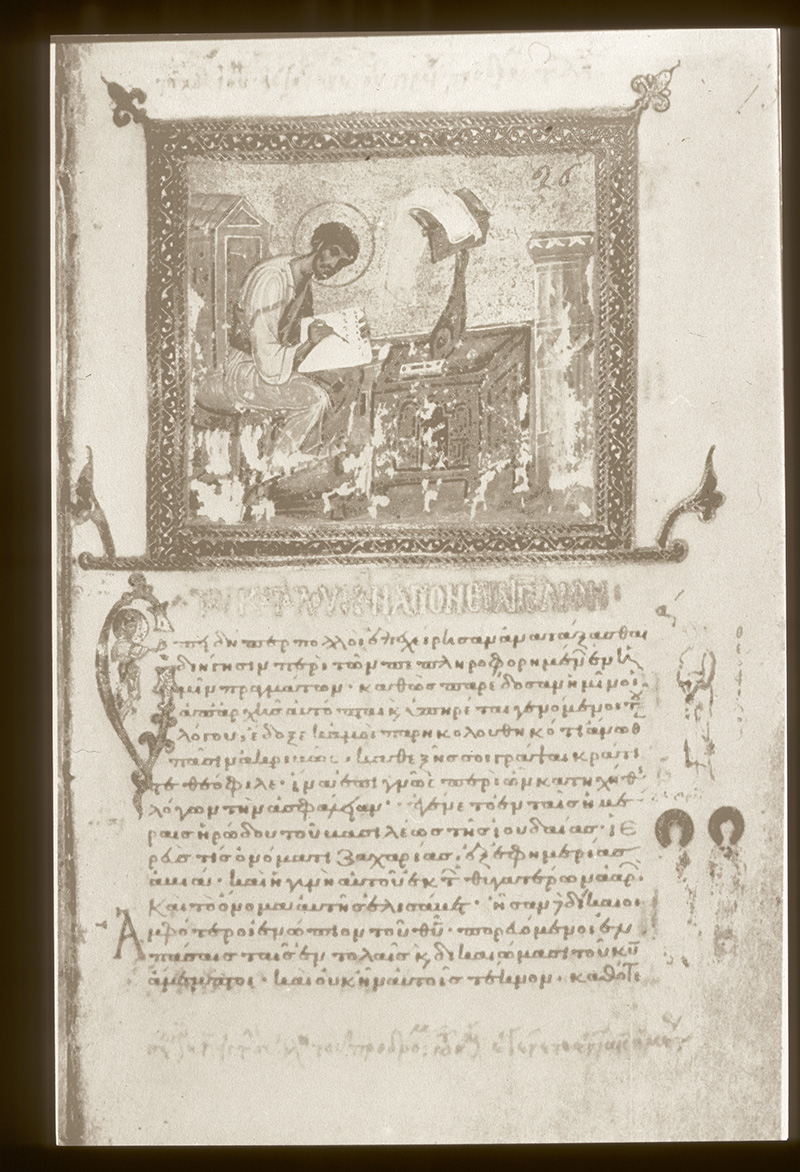 26
ΤΟ ΚΑΤΑ ΛΟΥΚΑΝ ΑΓΙΟΝ ΕΥΑΓΓΕΛΙΟΝ
Ἐπειδήπερ πολλοὶ ἐπεχείρησαν ἀνατάξασθαι
διήγησιν περὶ τῶν πεπληροφορημένων ἐν ἡ
μῖν πραγμάτων· καθὼς παρέδοσαν ἡμῖν οἱ
ἀπ' ἀρχῆς αὐτόπται κ ὑπηρέται γενόμενοι τ
λόγου, ἔδοξε κἀμοὶ παρηκολουθηκότι ἄνωθ
πᾶσιν ἀκριβῶς· καθεξῆς σοι γράψαι κράτι
τε θεόφιλε· ἵνα ἐπιγνῷς περὶ ὧν κατηχήθ
λόγων τὴν ἀσφάλειαν· ἐγένετο ἐν ταῖς ἡμέ
ραις ἡρώδου τοῦ βασιλέως τῆς ἰουδαίας· ἱε
ρεύς τις ὀνόματι ζαχαρίας, ἐξ ἐφημερίας
ἀβιά· καὶ ἡ γυνὴ αὐτοῦ ἐκ τ θυγατέρων ἀαρ
Καὶ τὸ ὄνομα αὐτῆς ἐλισάβετ· ἦσαν δὲ δίκαιοι
Ἀμφότεροι ἐνώπιον τοῦ θυ· πορευόμενοι ἐν
πάσαις ταῖς ἐντολαῖς κ δικαιώμασι τοῦ κυ
ἄμεμπτοι· καὶ οὐκ ἦν αὐτοῖς τέκνον· καθότι